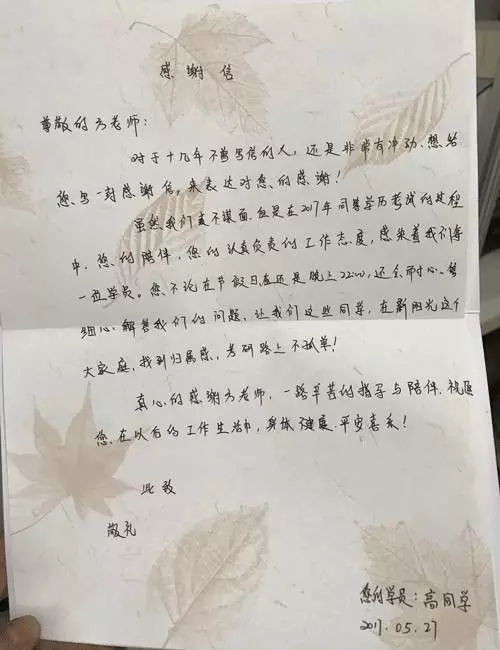 感谢信
尊敬的方老师：
对于十几年不曾写信的人，还是非常有冲动、想给
您写一封感谢信，来表达对您的感谢！
虽然我们素未谋面，但是在2017年同等学历考试的过程
中，您的陪伴，您的认真负责的工作态度，感染着我们每
一位学员。您不论在节假日还是晚上22:00，还会耐心、
细心解答我们的问题，让我们这些同学，在新阳光这个
大家庭，找到归属感，考研路上不孤单！
真心的感谢方老师，一路辛苦的指导与陪伴，祝愿
您在以后的工作生活中，身体健康、平安喜乐！
此致
敬礼
您的学员：高同学
2017.05.27